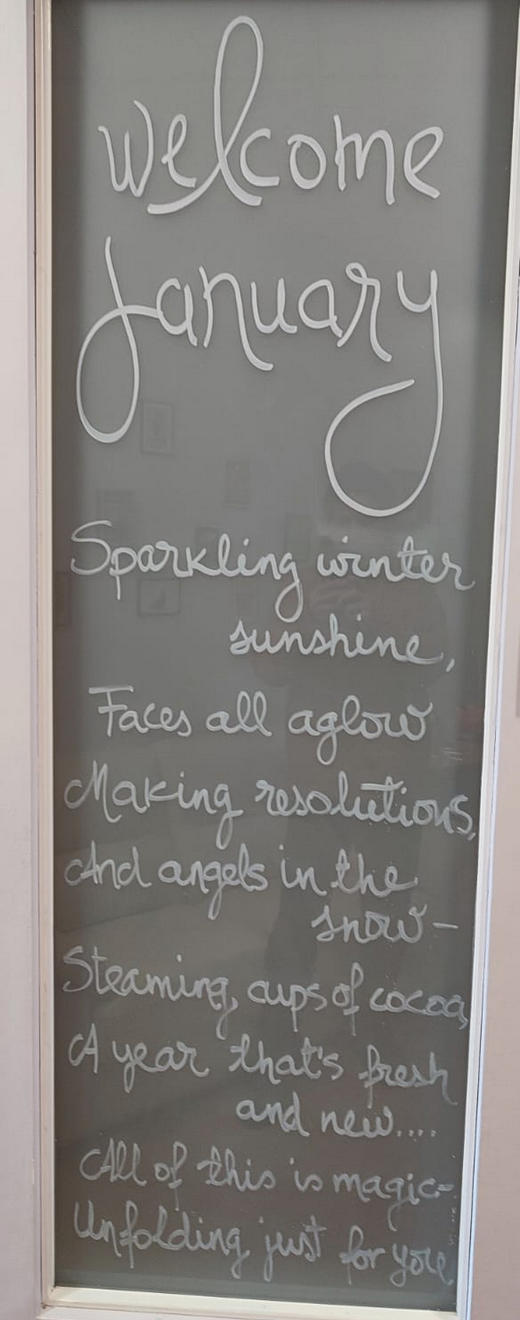 welcome
January
Sparkling winter
sunshine,
Faces all aglow
Making resolutions,
And angels in the
snow-
Steaming, cups of cocoa,
A year that's fresh
and new....
All of this is magic-
Unfolding just for you